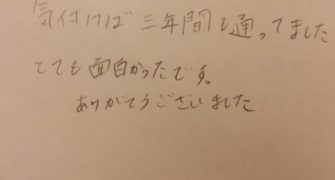 気付けば三年間も通ってました
とても面白かったです。
ありがとうございました